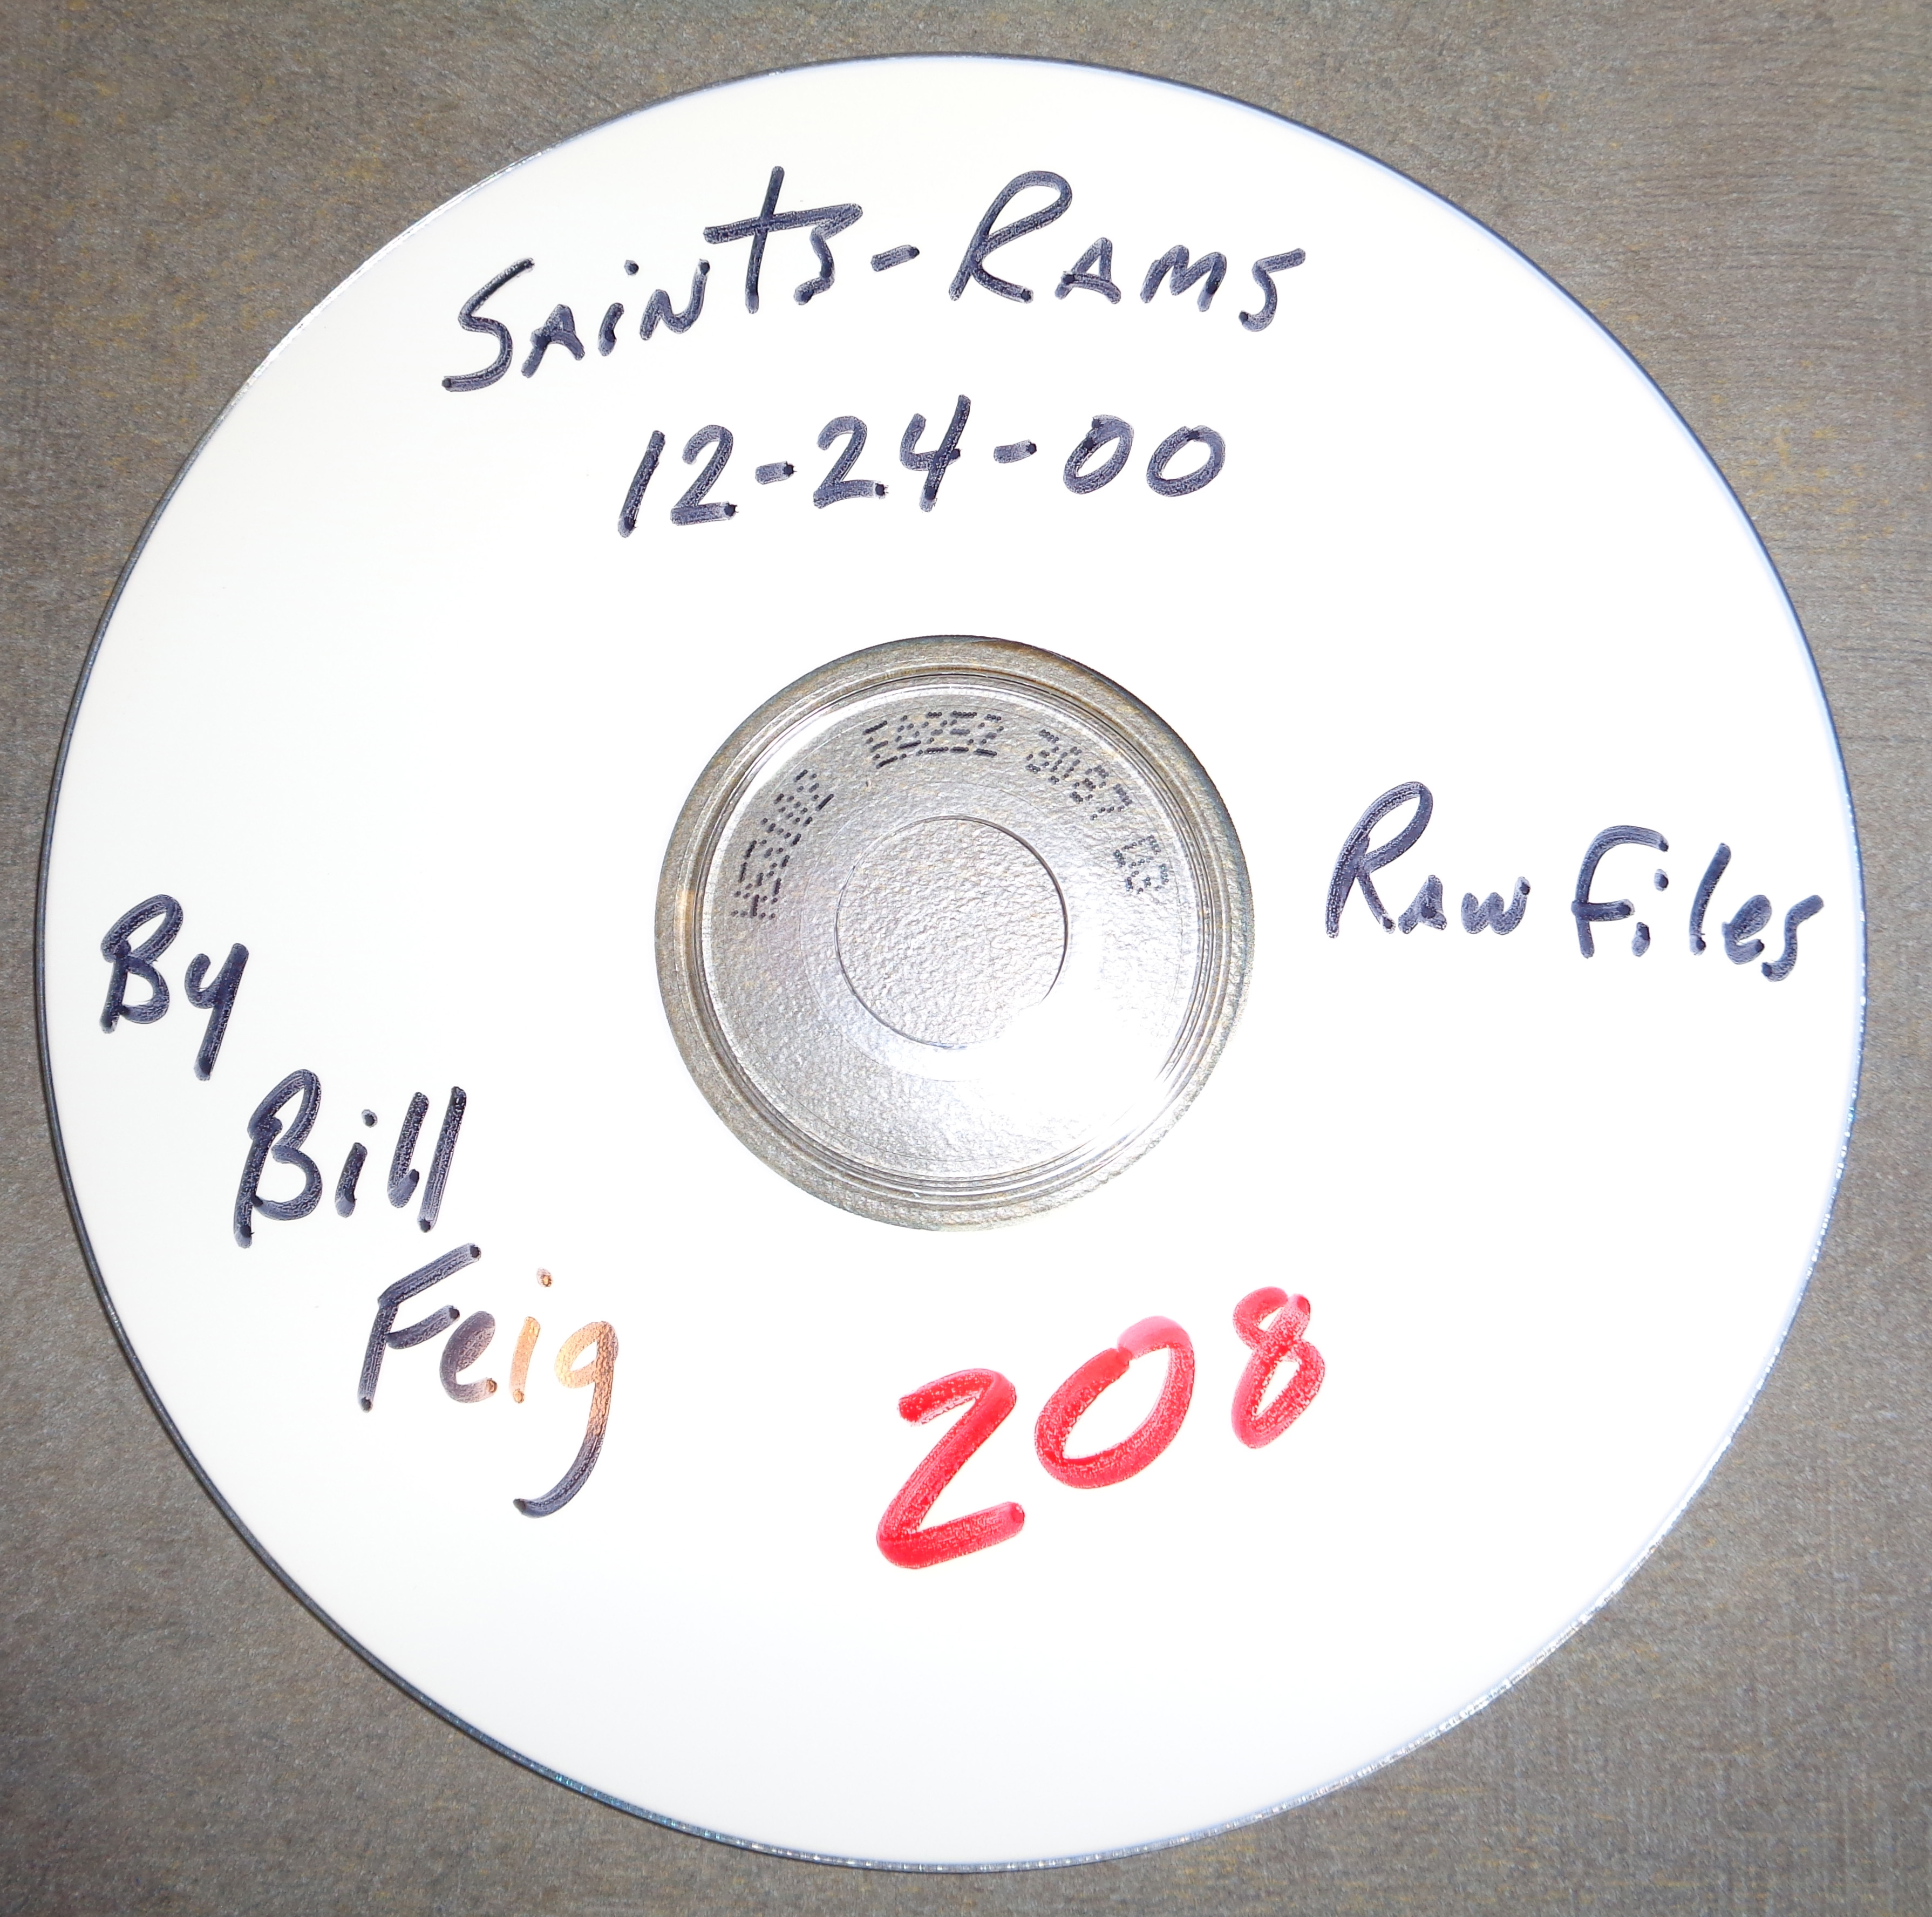 Saints-Rams
12-24-00
3087
Raw Files
By
Bill
Feig
208